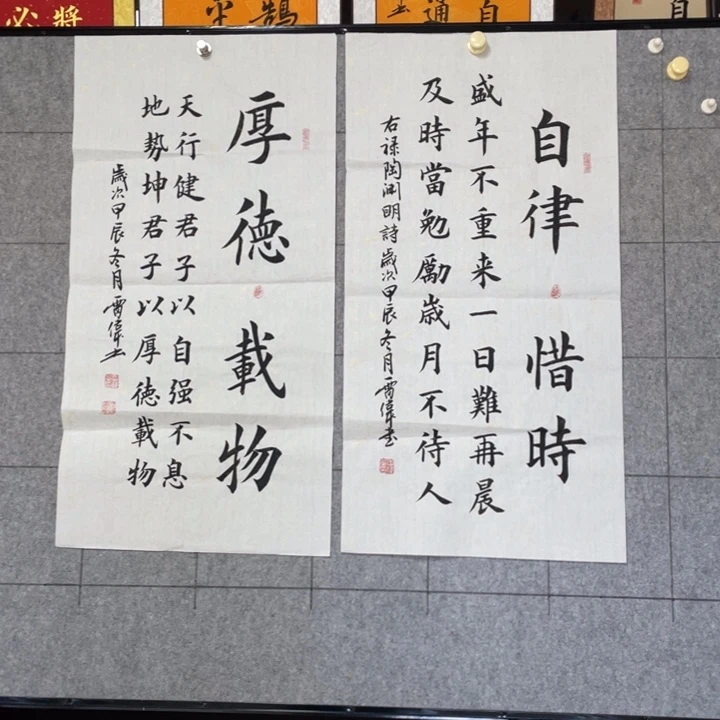 自律 惜時
盛年不重来一日難再晨
及時當勉勵歲月不待人
右禄陶渊明詩歲次甲辰冬月雷偉書
厚德 載物
天行健君子以自强不息
地勢坤君子以厚德載物
歲次甲辰冬月雷偉书
必將
鵠
通
自
自